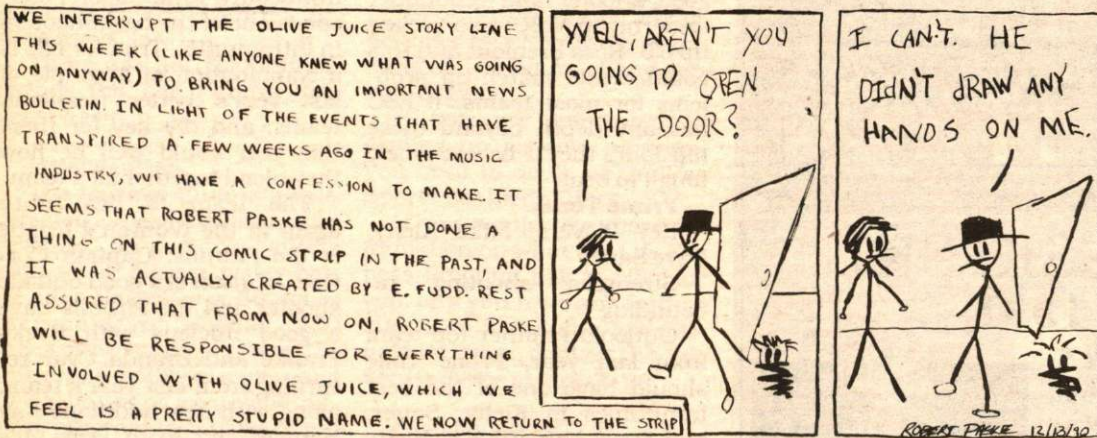 WE INTERRUPT THE OLIVE JUICE STORY LINE
THIS WEEK (LIKE ANYONE KNEW WHAT WAS GOING
ON ANYWAY) TO BRING YOU AN IMPORTANT NEWS
BULLETIN. IN LIGHT OF THE EVENTS THAT HAVE
TRANSPIRED A FEW WEEKS AGO IN THE MUSIC
INDUSTRY, WE HAVE A CONFESSION TO MAKE. IT
SEEMS THAT ROBERT PASKE HAS NOT DONE A
THING ON THIS COMIC STRIP IN THE PAST, AND
IT WAS ACTUALLY CREATED BY E. FUDD. REST
ASSURED THAT FROM NOW ON, ROBERT PASKE
WILL BE RESPONSIBLE FOR EVERYTHING
INVOLVED WITH OLIVE JUICE, WHICH WE
FEEL IS A PRETTY STUPID NAME. WE NOW RETURN TO THE STRIP
WELL, AREN'T YOU
GOING TO OPEN
THE DOOR?
I CAN'T. HE
DIDN'T DRAW ANY
HANDS ON ME.
ROBERT PASKE 12/13/90